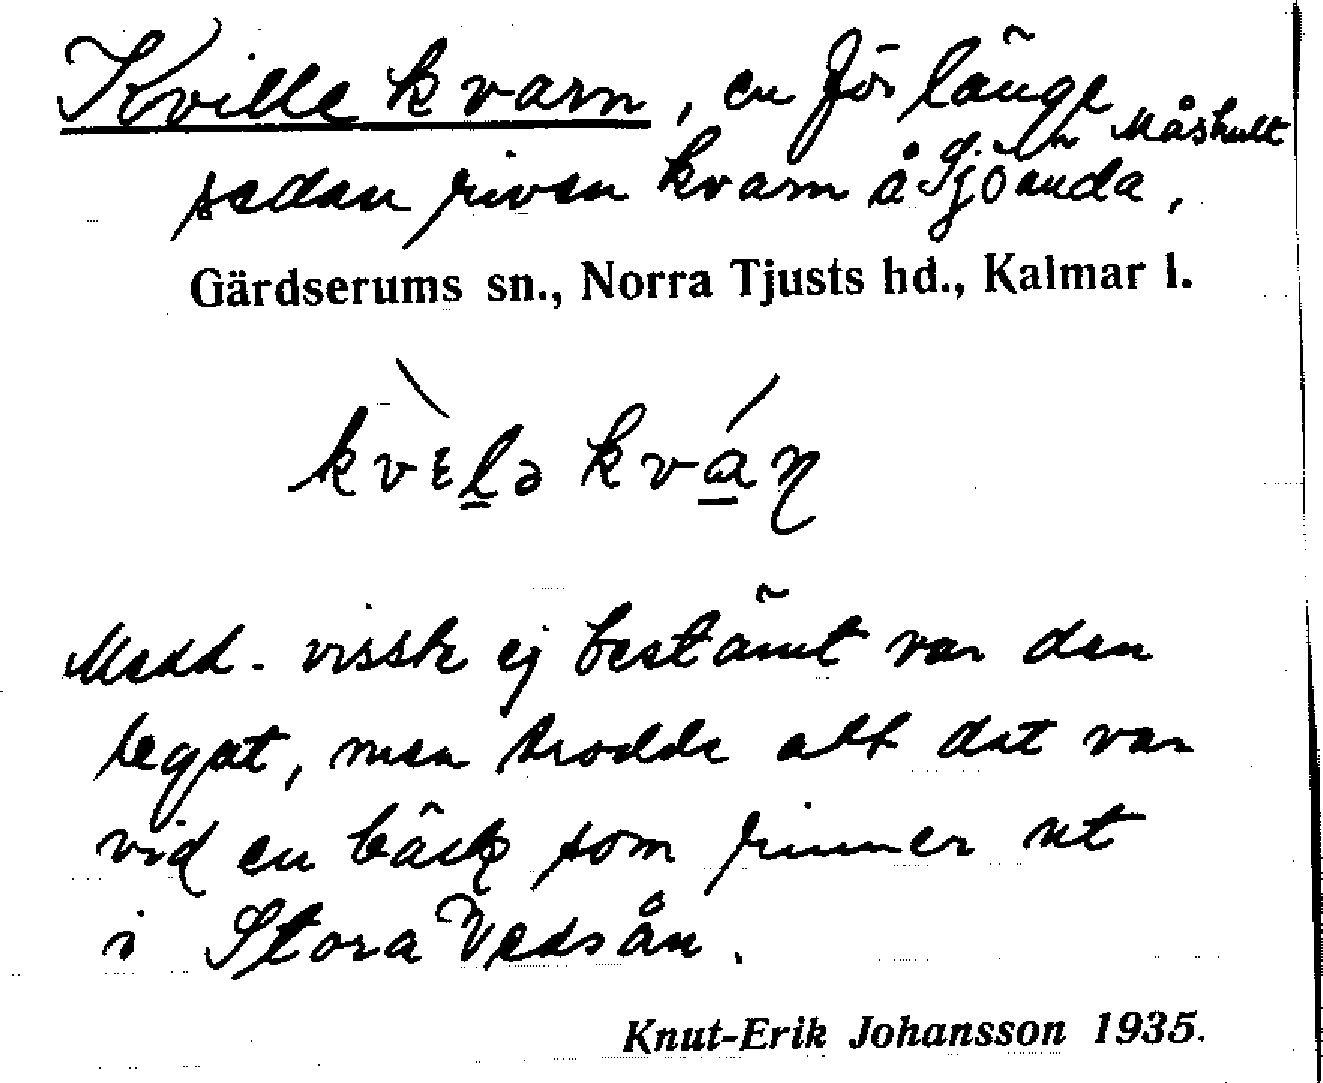 Kville kvarn, en för länge
sedan riven kvarn å Sjöända, Måshult
Gärdserums sn., Norra Tjusts hd., Kalmar l.
kvɛ̀lə kván
Medd. visste ej bestämt var den
legat, men trodde att det var
vid en bäck som rinner ut
i Stora Vedsån.
Knut-Erik Johansson 1935.